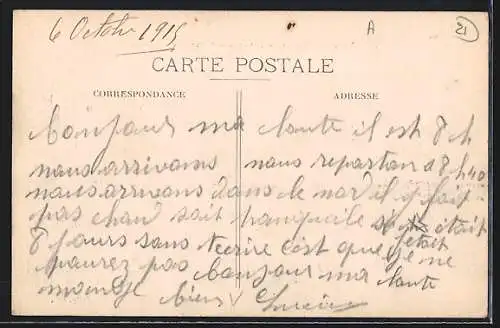 6 Octobre 1915
A
21
CARTE POSTALE
CORRESPONDANCE
ADRESSE
bonjour ma tante il est 8 h
nous arrivons nous reparton a 8 h 40
nous arrivons dans le nord il y fait
pas chaud soit tranquile si était
8 jours sans t'ecrire c'est que
pourez pas bonjour ma tante
bien